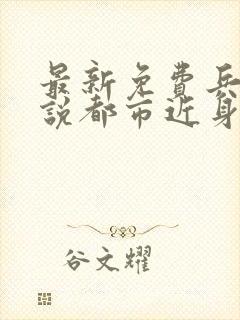 最新免費兵
說都市近身
谷文耀